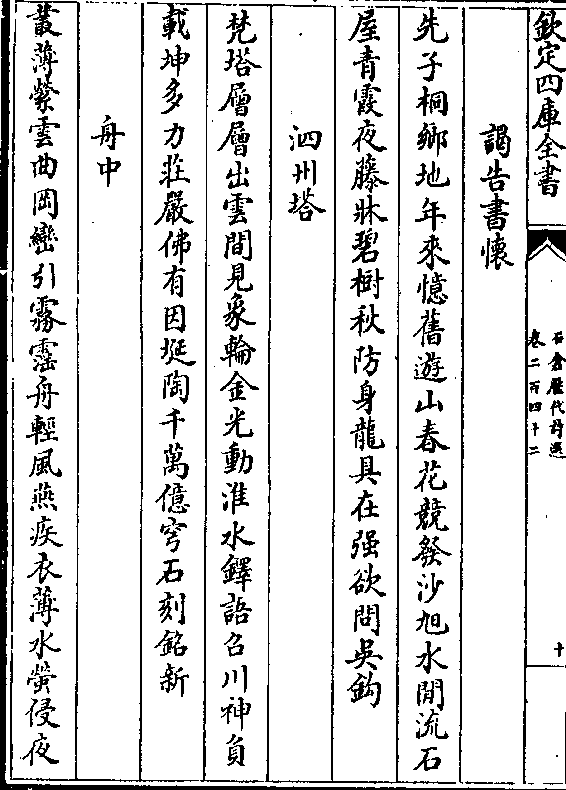 欽定四庫全書
石倉歷代詩選
卷二百四十二
十
謁告書懷
先子桐鄉地年來憶舊遊山春花競發沙旭水閒流石
屋青霞夜藤牀碧樹秋防身龍具在强欲問吳鈎
泗州塔
梵塔層層出雲間見象輪金光動淮水鐸語召川神負
載坤多力莊嚴佛有因埏陶千萬億穹石刻銘新
舟中
叢薄縈雲曲岡巒引霧窪舟輕風燕疾衣薄水螢侵夜